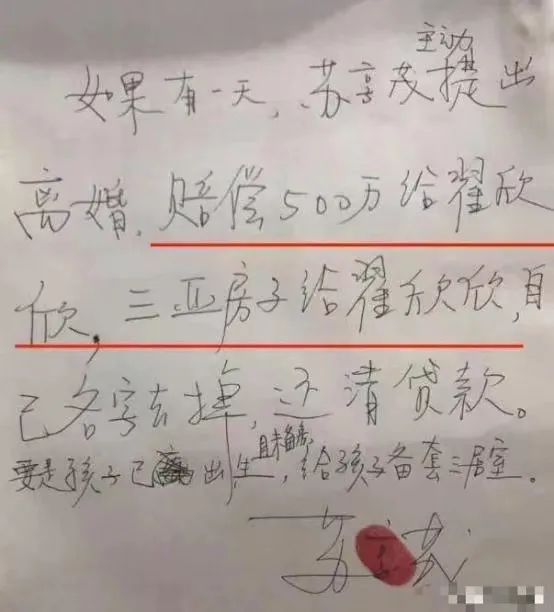 如果有一天,苏享茂主动提出
离婚,赔偿500万给翟欣
欣,三亚房子给翟欣欣,自
己名字去掉,还清贷款。
要是孩子已出生,给孩子备套三居室。
苏享茂